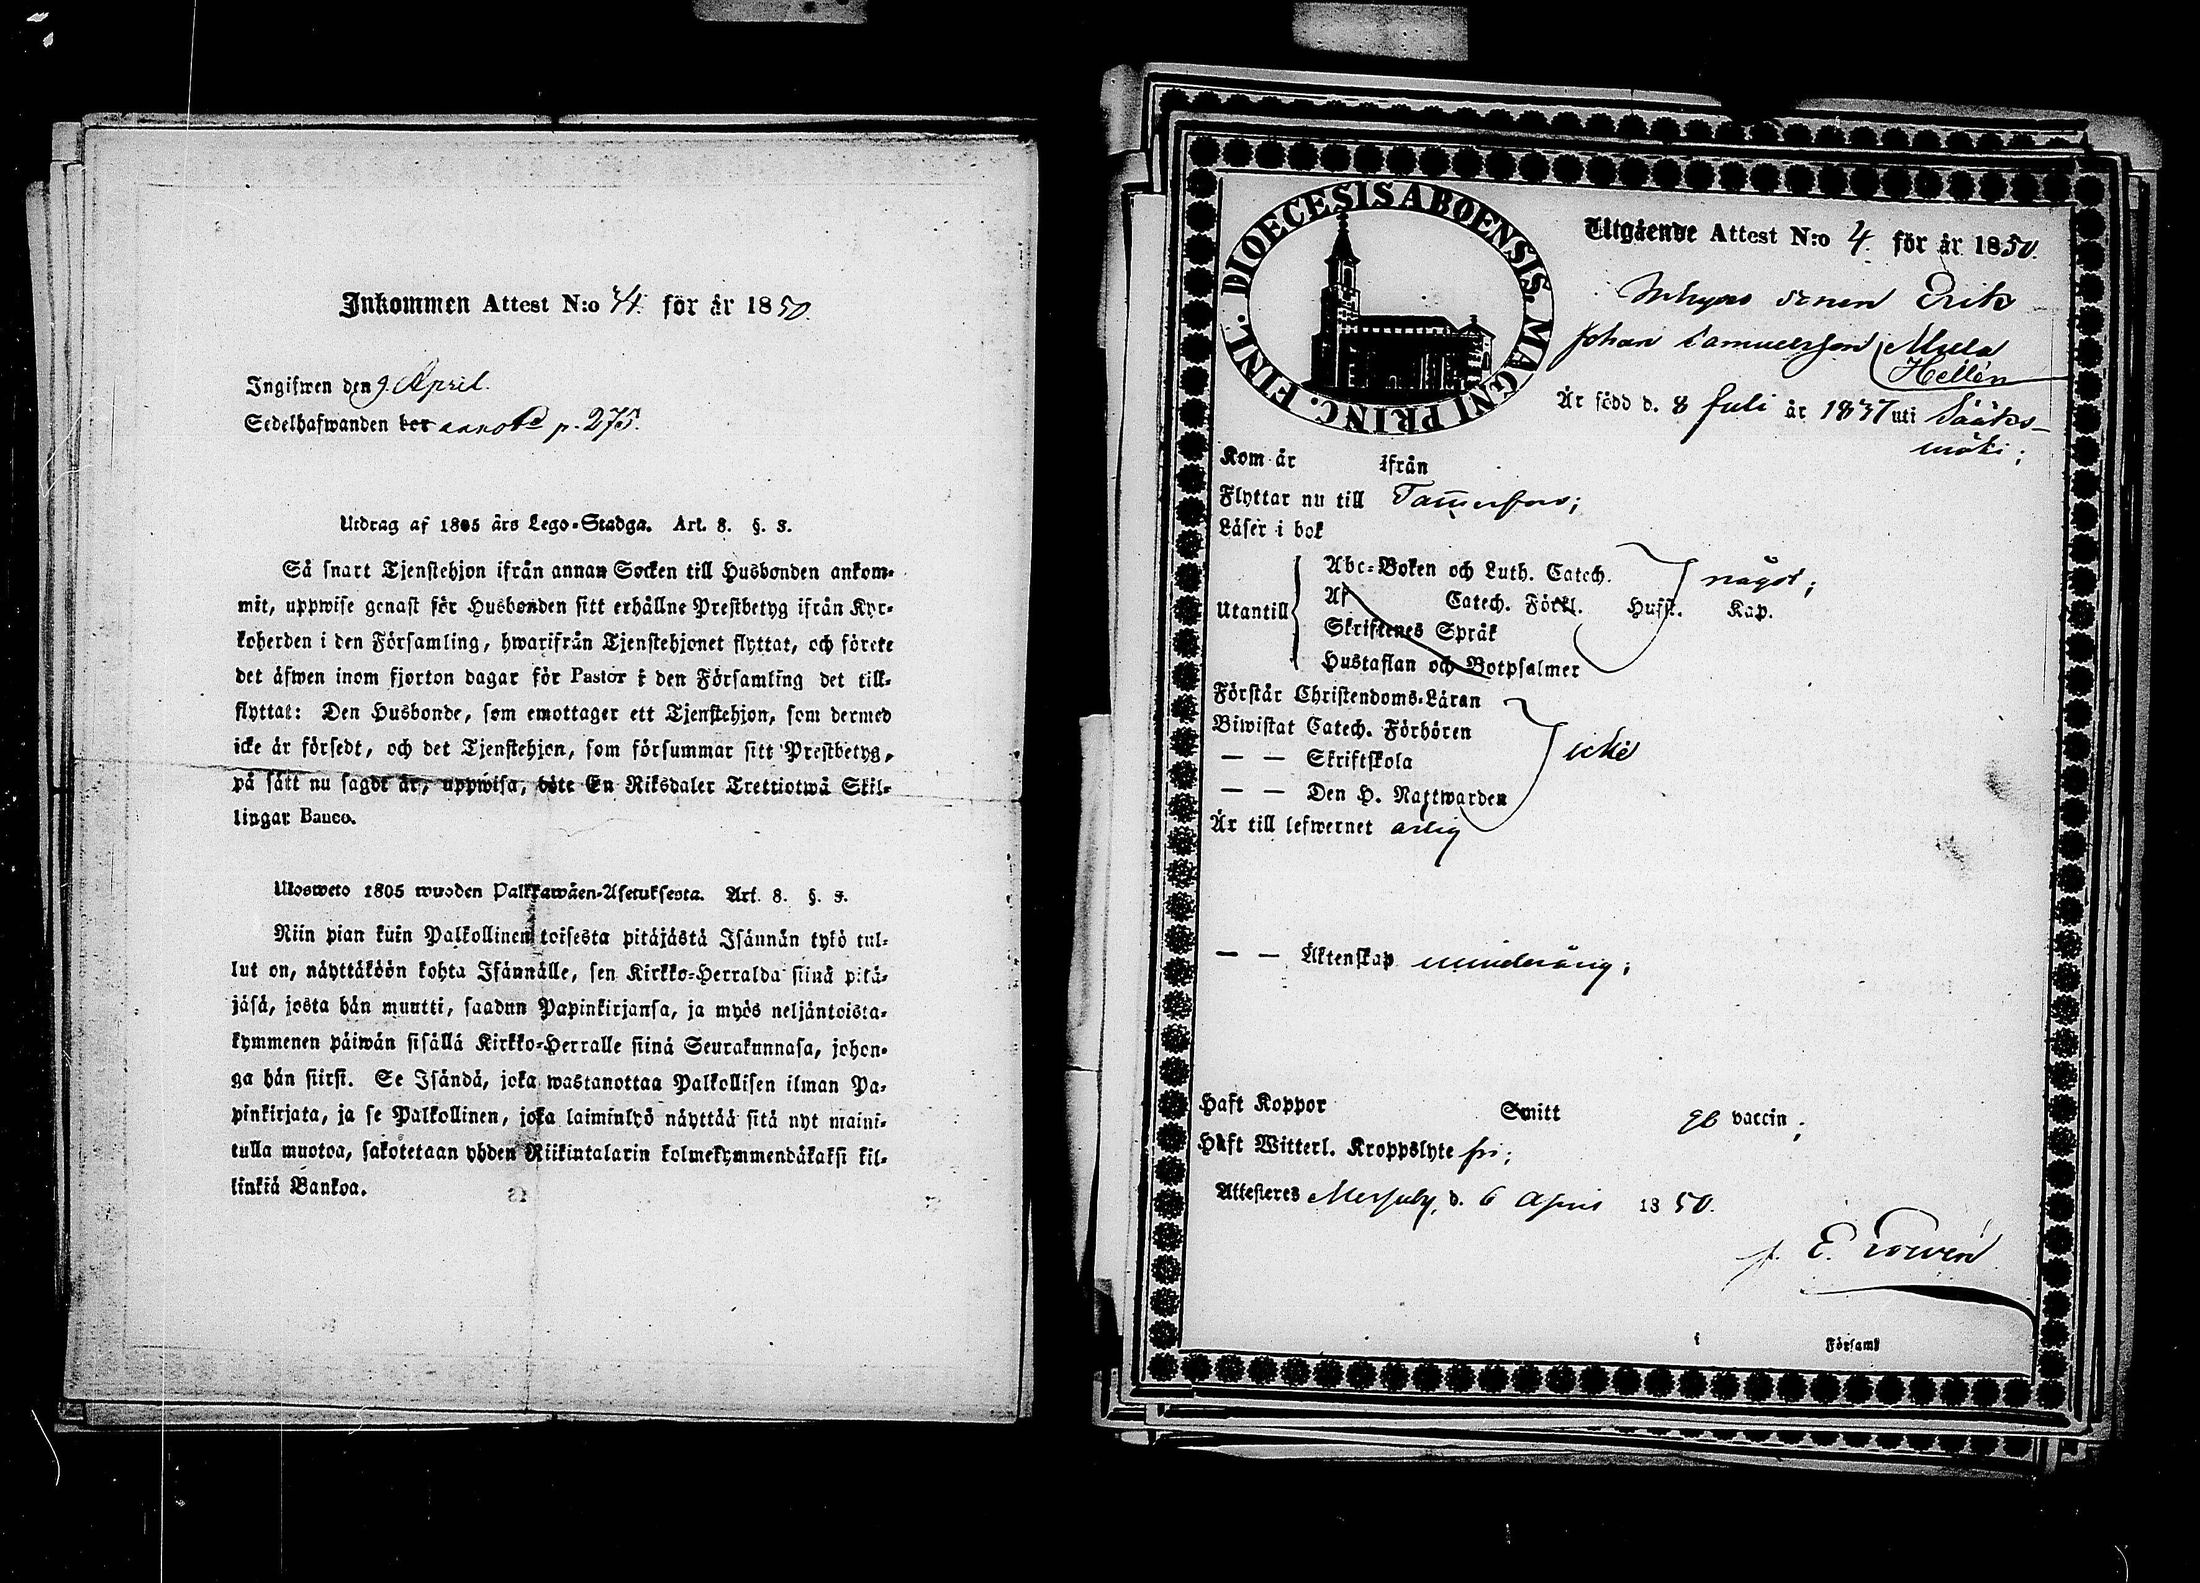 Inkommen Attest N:o 34. för år 1850.
Ingifwen den 9. April.
Sedelhafwanden ber annot. p. 275.
Utdrag af 1805 års Lego-Stadga. Art. 8. §. 3.
Så snart Tjenstehjon ifrån annan Socken till Husbonden ankom-
mit, uppwise genast för Husbonden sitt erhållne Prestbetyg ifrån Kyr-
koherden i den Församling, hwarifrån Tjenstehjonet flyttat, och förete
det äfwen inom fjorton dagar för Pastor i den Församling det till-
flyttat: Den Husbonde, som emottager ett Tjenstehjon, som dermed
icke är försedt, och det Tjenstehjon, som försummar sitt Prestbetyg,
på sätt nu sagdt är, uppwisa, böte En Riksdaler Trettiotwå Skil-
lingar Banco.
Ulosweto 1805 wuoden Palkkawäen-Asetuksesta. Art. 8. §. 3.
Niin pian kuin Palkollinen toisesta pitäjästä Isännän tykö tul-
lut on, näyttäköön kohta Isännälle, sen Kirkko-Herralda siinä pitä-
jäsä, josta hän muutti, saadun Papinkirjansa, ja myös neljäntoista-
kymmenen päiwän sisällä Kirkko-Herralle siinä Seurakunnasa, johon-
ga hän siirsi. Se Isändä, joka wastanottaa Palkollisen ilman Pa-
pinkirjata, ja se Palkollinen, joka laiminlyö näyttää sitä nyt maini-
tulla muotoa, sakotetaan yhden Riikintalarin kolmekymmendäkaksi kil-
linkiä Bankoa.
DIOECESIS ABOENSIS. MAGNI PRINC. FINL.
Utgående Attest N:o 4. för år 1850.
Inhyses sonen Erik
Johan Samuelsson
Hellén
Är född d. 8 Juli år 1837 uti Sääks-
mäki;
Kom år ifrån
Flyttar nu till Tammerfors;
Läser i bok
Utantill
Abc-Boken och Luth. Catech. något;
Af Catech. Förkl. Husst. Kap.
Skriftenes Språk
Hustaflan och Botpsalmer
Förstår Christendoms-Läran
Biwistat Catech. Förhören
— — Skriftskola icke
— — Den H. Nattwarden
Är till lefwernet ärlig
— — Äktenskap minderårig;
Haft Koppor Smitt gb vaccin;
Haft Witterl. Kroppslyte fri;
Attesteres Messuby, d. 6 April 1850.
E.
i Församl